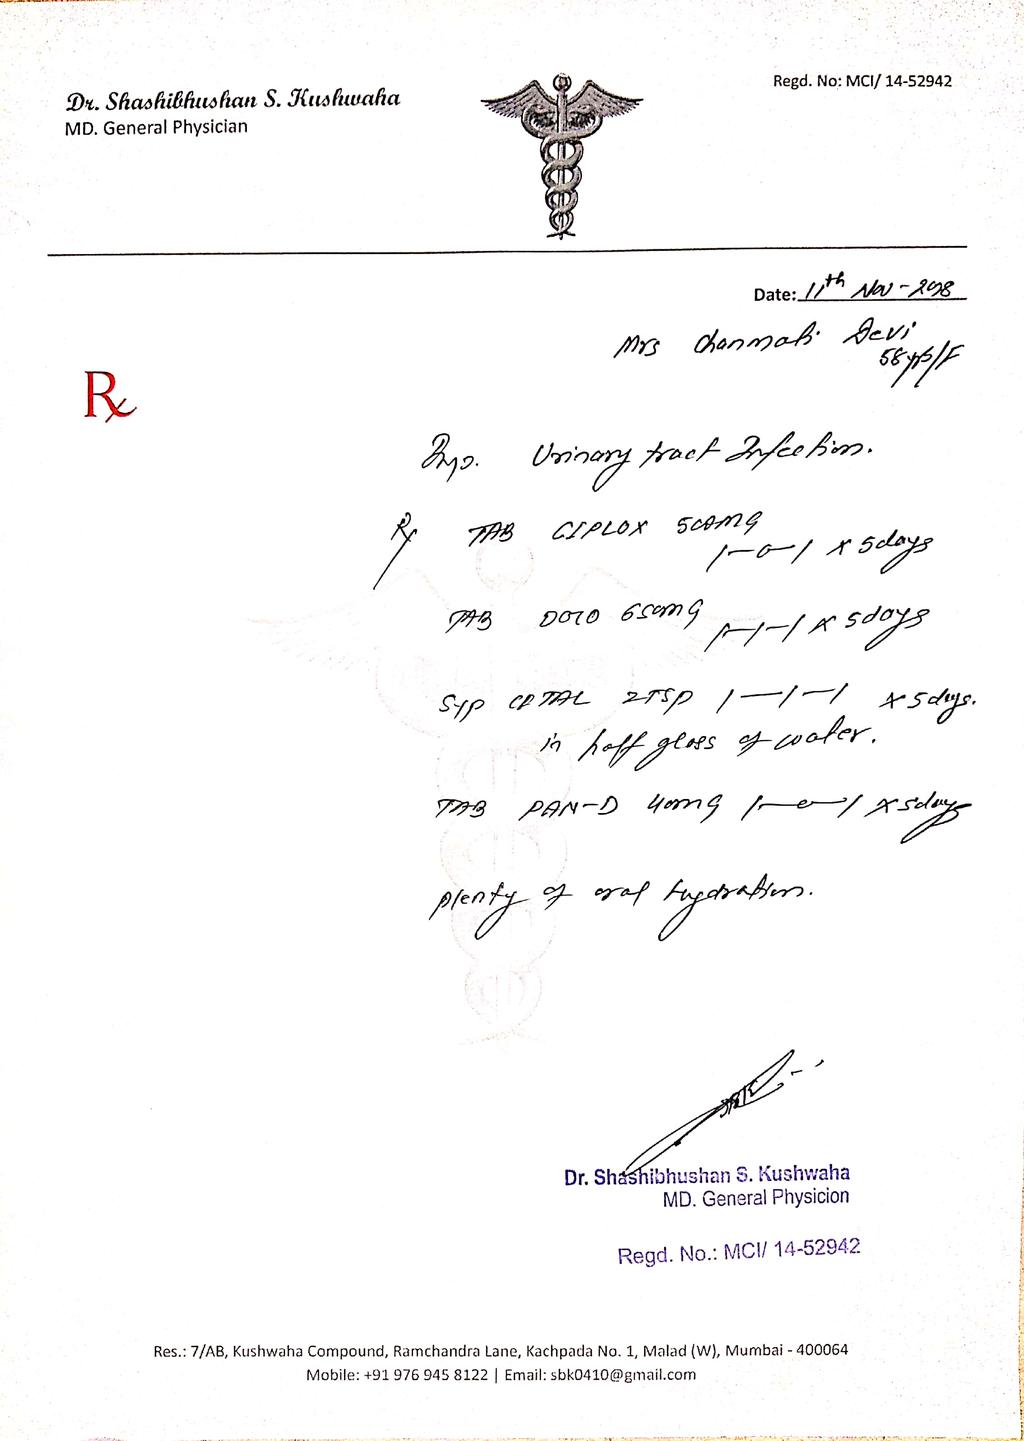 Dr. Shashibhushan S. Kushwaha
MD. General Physician
Regd. No: MCI/ 14-52942
Date: 11th Nov - 2018
Mrs Chanmati Devi
58 yrs/F
Rx
Imp. Urinary tract Infection.
Rx TAB CIPLOX 500MG
1-0-1 x 5days
TAB DOLO 650MG
1-1-1 x 5days
Syp CITAL 2TSP 1-1-1 x 5days.
in half glass of water.
TAB PAN-D 40MG 1-0-1 x 5days
plenty of oral Hydration.
Dr. Shashibhushan S. Kushwaha
MD. General Physicion
Regd. No.: MCI/ 14-52942
Res.: 7/AB, Kushwaha Compound, Ramchandra Lane, Kachpada No. 1, Malad (W), Mumbai - 400064
Mobile: +91 976 945 8122 | Email: sbk0410@gmail.com